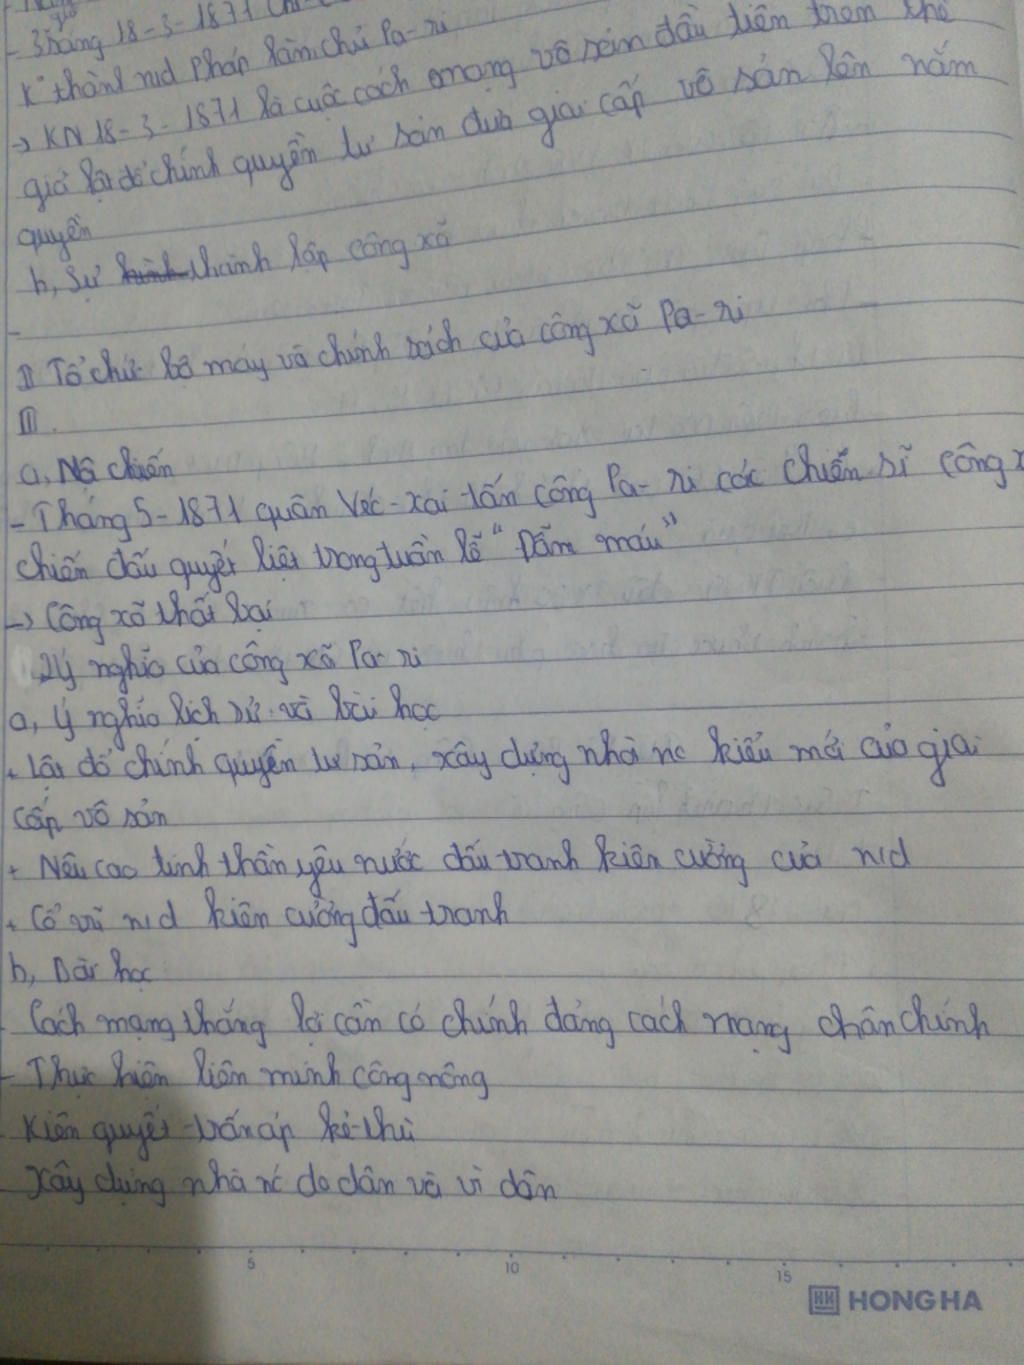 - 3 sáng 18-3-1871
K' thành n/d Pháp làm chủ Pa-ri
-> KN 18-3-1871 là cuộc cách mạng vô sản đầu tiên trên thế
giới lật đổ chính quyền tư sản đưa giai cấp vô sản lên nắm
quyền
b, Sự thành lập công xã
-
II Tổ chức bộ máy và chính sách của công xã Pa-ri
III.
a, Nội chiến
- Tháng 5-1871 quân Véc-xai tấn công Pa-ri các chiến sĩ công x
chiến đấu quyết liệt trong tuần lễ "Đẫm máu"
-> Công xã thất bại
2, Ý nghĩa của công xã Pa-ri
a, Ý nghĩa lịch sử và bài học
+ Lật đổ chính quyền tư sản, xây dựng nhà nc kiểu mới của giai
cấp vô sản
+ Nêu cao tinh thần yêu nước đấu tranh kiên cường của n/d
+ Cổ vũ n/d kiên cường đấu tranh
b, Bài học
- Cách mạng thắng lợi cần có chính đảng cách mạng chân chính
- Thực hiện liên minh công nông
Kiên quyết trấn áp kẻ thù
Xây dựng nhà nc do dân và vì dân
5 10 15
HH HONG HA